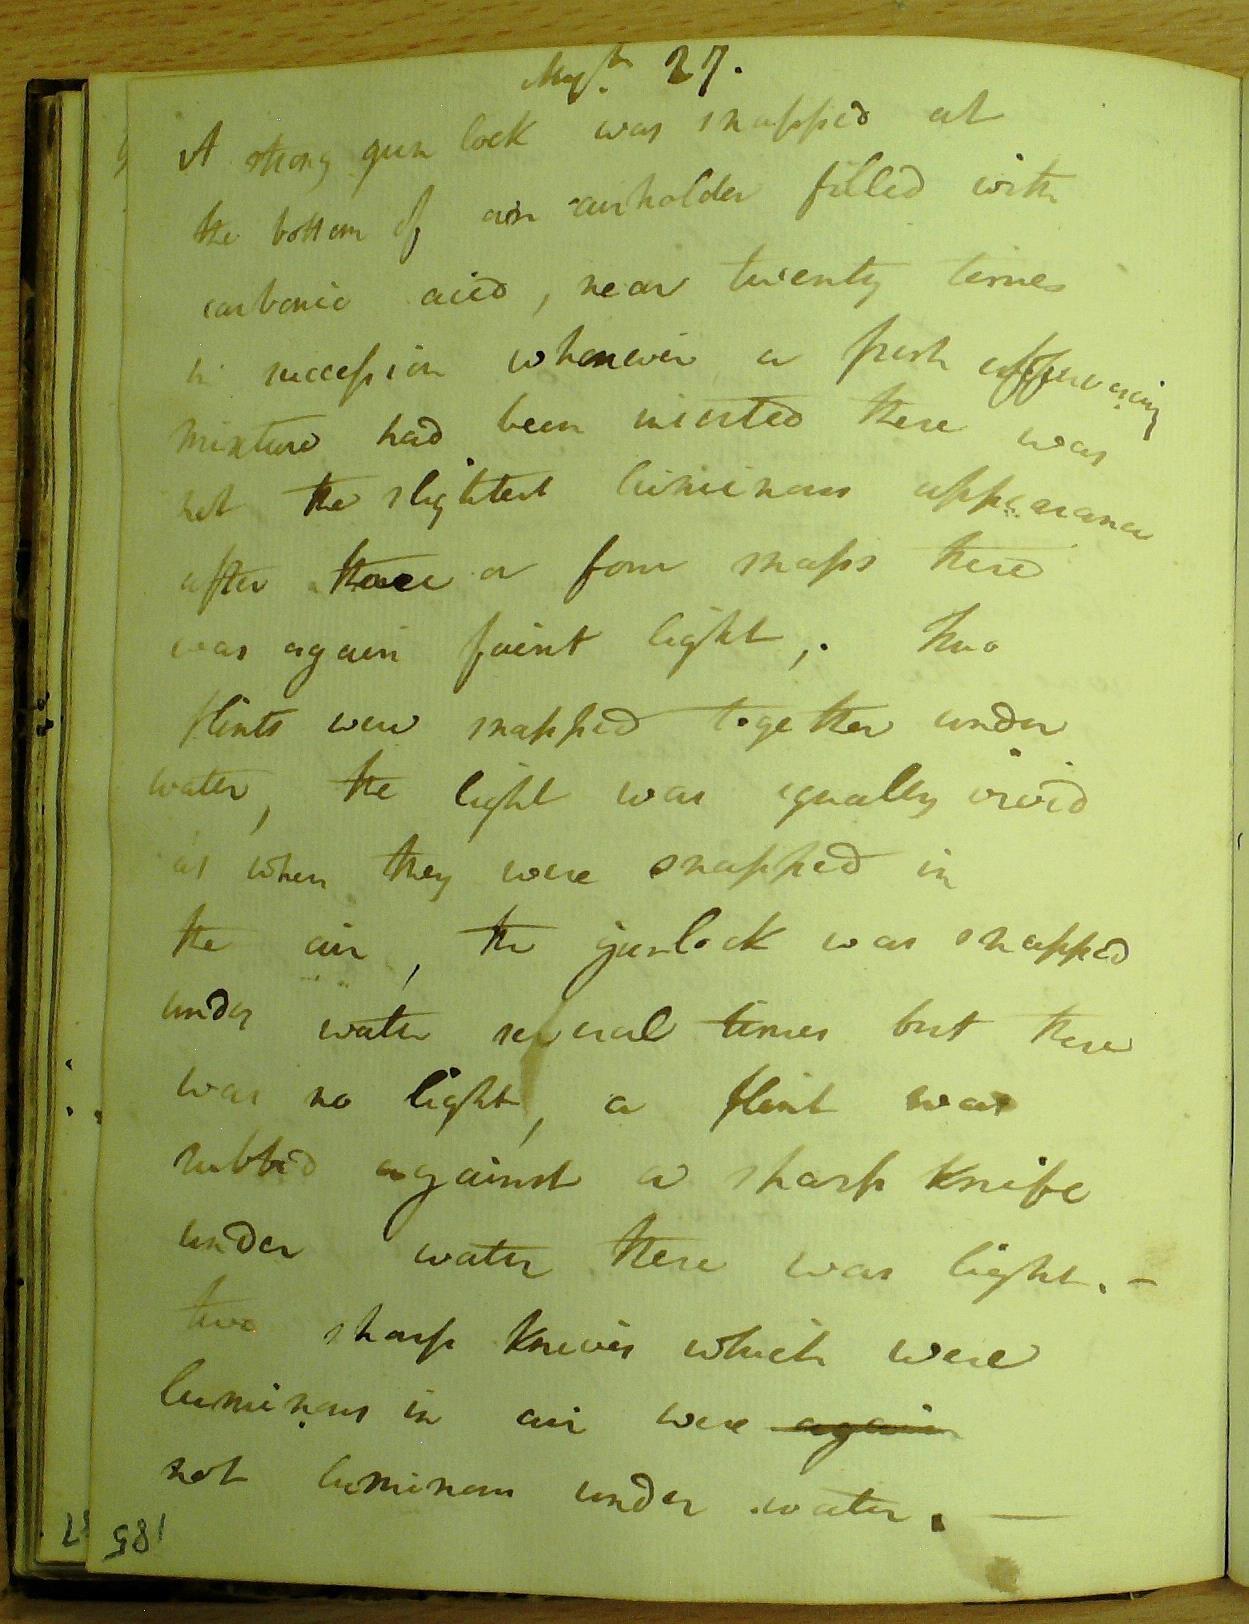 27.
A strong gun lock was snapped at
the bottom of an airholder filled with
carbonic acid, near twenty times
in succession whenever a fresh effervescing
mixture had been inserted there was
not the slightest luminous appearance
after three or four snaps there
was again faint light,. Two
flints were snapped together under
water, the light was equally vivid
as when they were snapped in
the air, the gunlock was snapped
under water several times but there
was no light, a flint was
rubbed against a sharp knife
under water there was light. -
two sharp knives which were
luminous in air were again
not luminous under water. —
185